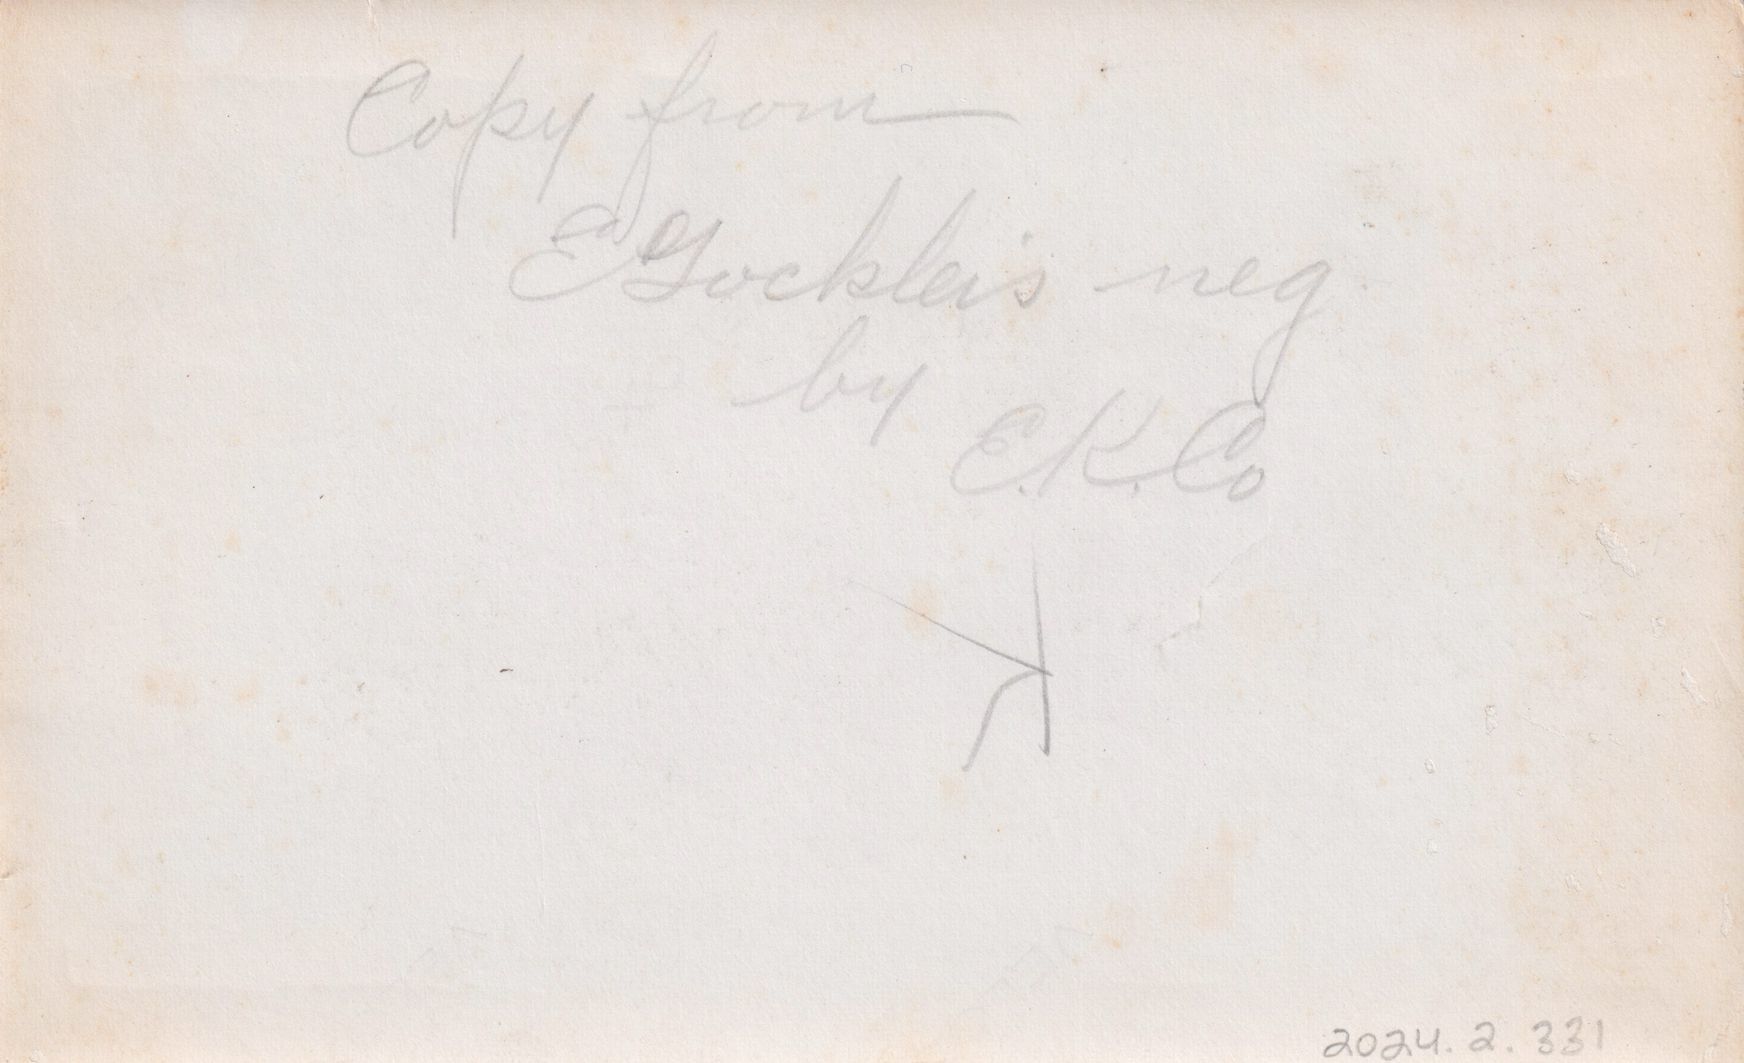 Copy from
E Gockler's neg
by
E.K.Co
2024.2.331